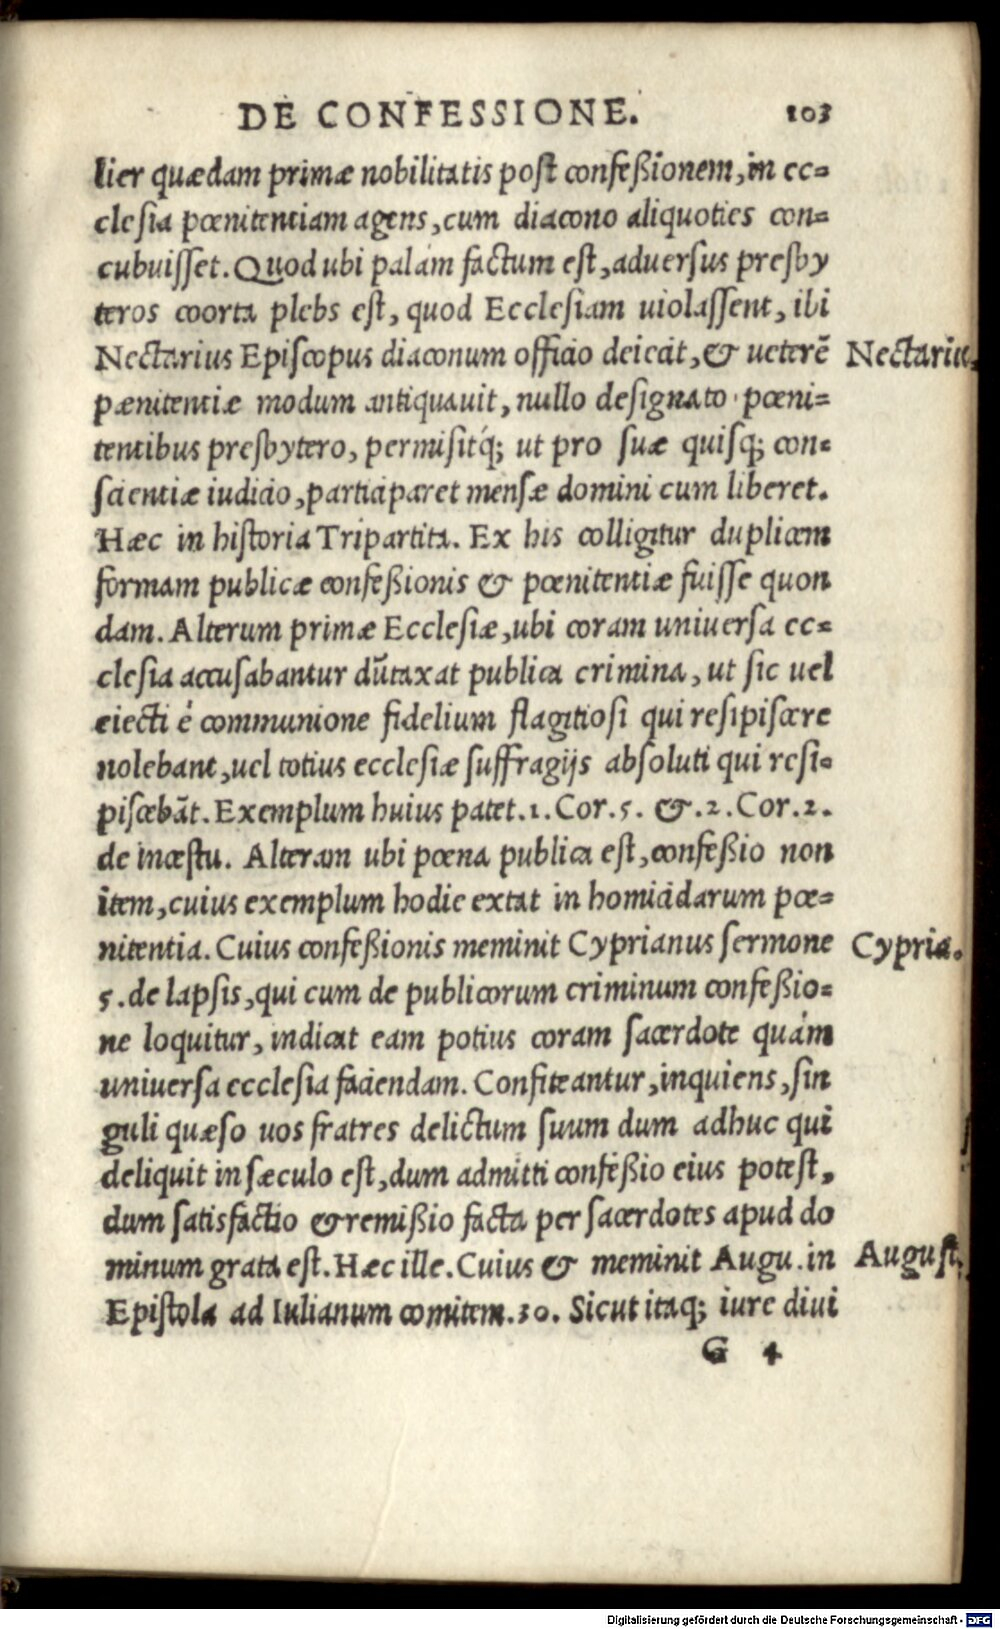 DE CONFESSIONE. 103
lier quædam primæ nobilitatis post confeßionem, in ec=
clesia pœnitentiam agens, cum diacono aliquoties con=
cubuisset. Quod ubi palàm factum est, aduersus presby
teros coorta plebs est, quod Ecclesiam uiolassent, ibi
Nectarius Episcopus diaconum officio deiecit, & ueterē Nectariu.
pænitentiæ modum antiquauit, nullo designato pœni=
tentibus presbytero, permisitq́; ut pro suæ quisq; con=
scientiæ iudicio, participaret mensæ domini cum liberet.
Hæc in historia Tripartita. Ex his colligitur duplicem
formam publicæ confeßionis & pœnitentiæ fuisse quon
dam. Alterum primæ Ecclesiæ, ubi coram uniuersa ec=
clesia accusabantur dūtaxat publica crimina, ut sic uel
eiecti é communione fidelium flagitiosi qui resipiscere
nolebant, uel totius ecclesiæ suffragijs absoluti qui resi=
piscebāt. Exemplum huius patet. 1. Cor. 5. &. 2. Cor. 2.
de incestu. Alteram ubi pœna publica est, confeßio non
item, cuius exemplum hodie extat in homicidarum pœ=
nitentia. Cuius confeßionis meminit Cyprianus sermone Cypria.
5. de lapsis, qui cum de publicorum criminum confeßio=
ne loquitur, indicat eam potius coram sacerdote quàm
uniuersa ecclesia faciendam. Confiteantur, inquiens, sin
guli quæso uos fratres delictum suum dum adhuc qui
deliquit in sæculo est, dum admitti confeßio eius potest,
dum satisfactio & remißio facta per sacerdotes apud do
minum grata est. Hæc ille. Cuius & meminit Augu. in August.
Epistola ad Iulianum comitem. 30. Sicut itaq; iure diui
G 4
Digitalisierung gefördert durch die Deutsche Forschungsgemeinschaft - DFG